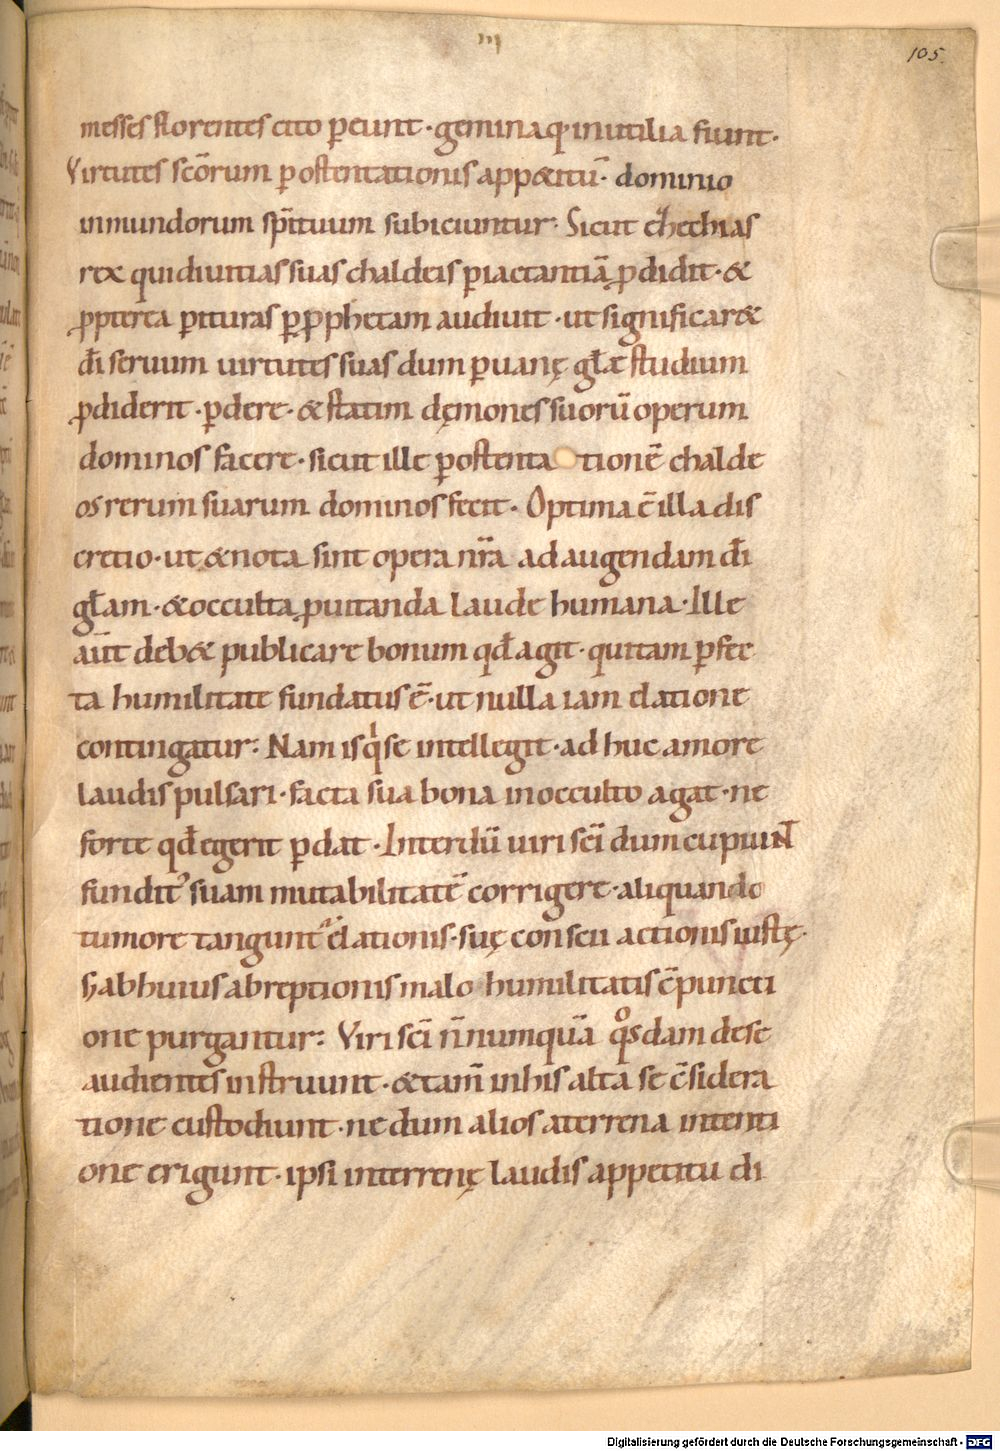 105.
messes florentes cito ꝑeunt · geminaq· inutilia fiunt ·
Virtutes scōrum ꝑ ostentationis app&itū · dominio
inmundorum sp̄ituum subiciuntur : Sicut ezhechias
rex qui diuitias suas chaldeis ꝑ iactantiā ꝓdidit · &
ꝓpterea ꝑituras ꝑ ꝓph&am audiuit · ut significar&
dī seruum uirtutes suas dum ꝑ uanę gl̄æ studium
ꝓdiderit · ꝑdere · & statim dęmones suorū operum
dominos facere · sicut ille ꝑ ostentationē chalde
os rerum suarum dominos fecit · Optima ē illa dis
cretio · ut & nota sint opera nr̄a ad augendam dī
gl̄am · & occulta ꝓ uitanda laude humana · Ille
aūt deb& publicare bonum qđ agit · qui tam ꝑfec
ta humilitate fundatus ē · ut nulla iam elatione
contingatur : Nam is qͥ se intellegit · adhuc amore
laudis pulsari · facta sua bona in occulto agat · ne
forte qđ egerit ꝑdat · Interdū uiri scī dum cupiunt
fundit᾽ suam mutabilitatē corrigere · aliquando
tumore tangunt᾽ elationis · suę conscii actionis iustę ·
S; ab huius abreptionis malo humilitatis c̄puncti
one purgantur : Viri scī n̄numquā qͦsdam de se
audientes instruunt · & tam̄ in his alta se c̄sidera
tione custodiunt · ne dum alios a terrena intenti
one erigunt · ipsi in terrenę laudis appetitu di
Digitalisierung gefördert durch die Deutsche Forschungsgemeinschaft - DFG